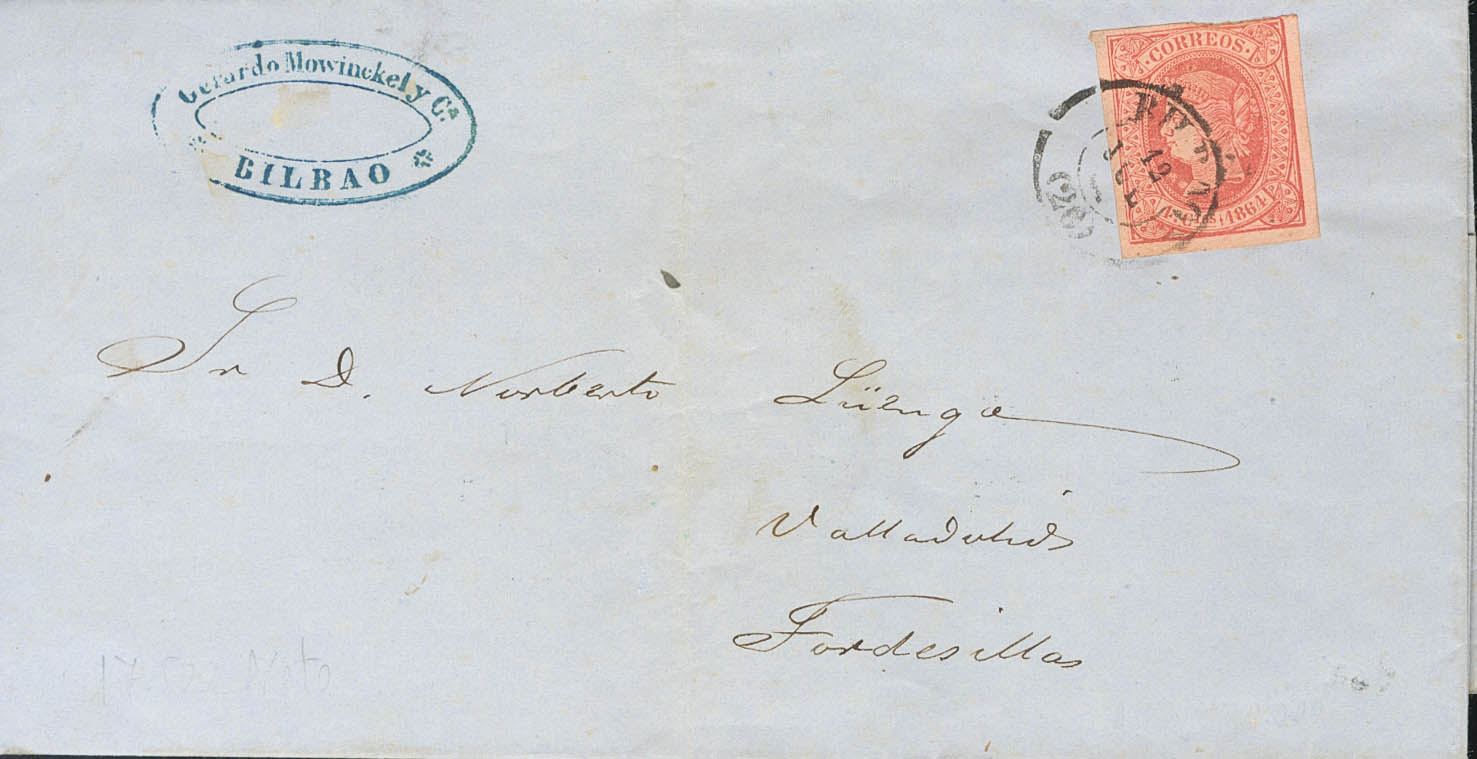 Gerardo Mowinckel y Cª
BILBAO
CORREOS
1864
12
Sr D. Norberto Lüenga
Valladolid
Tordesillas